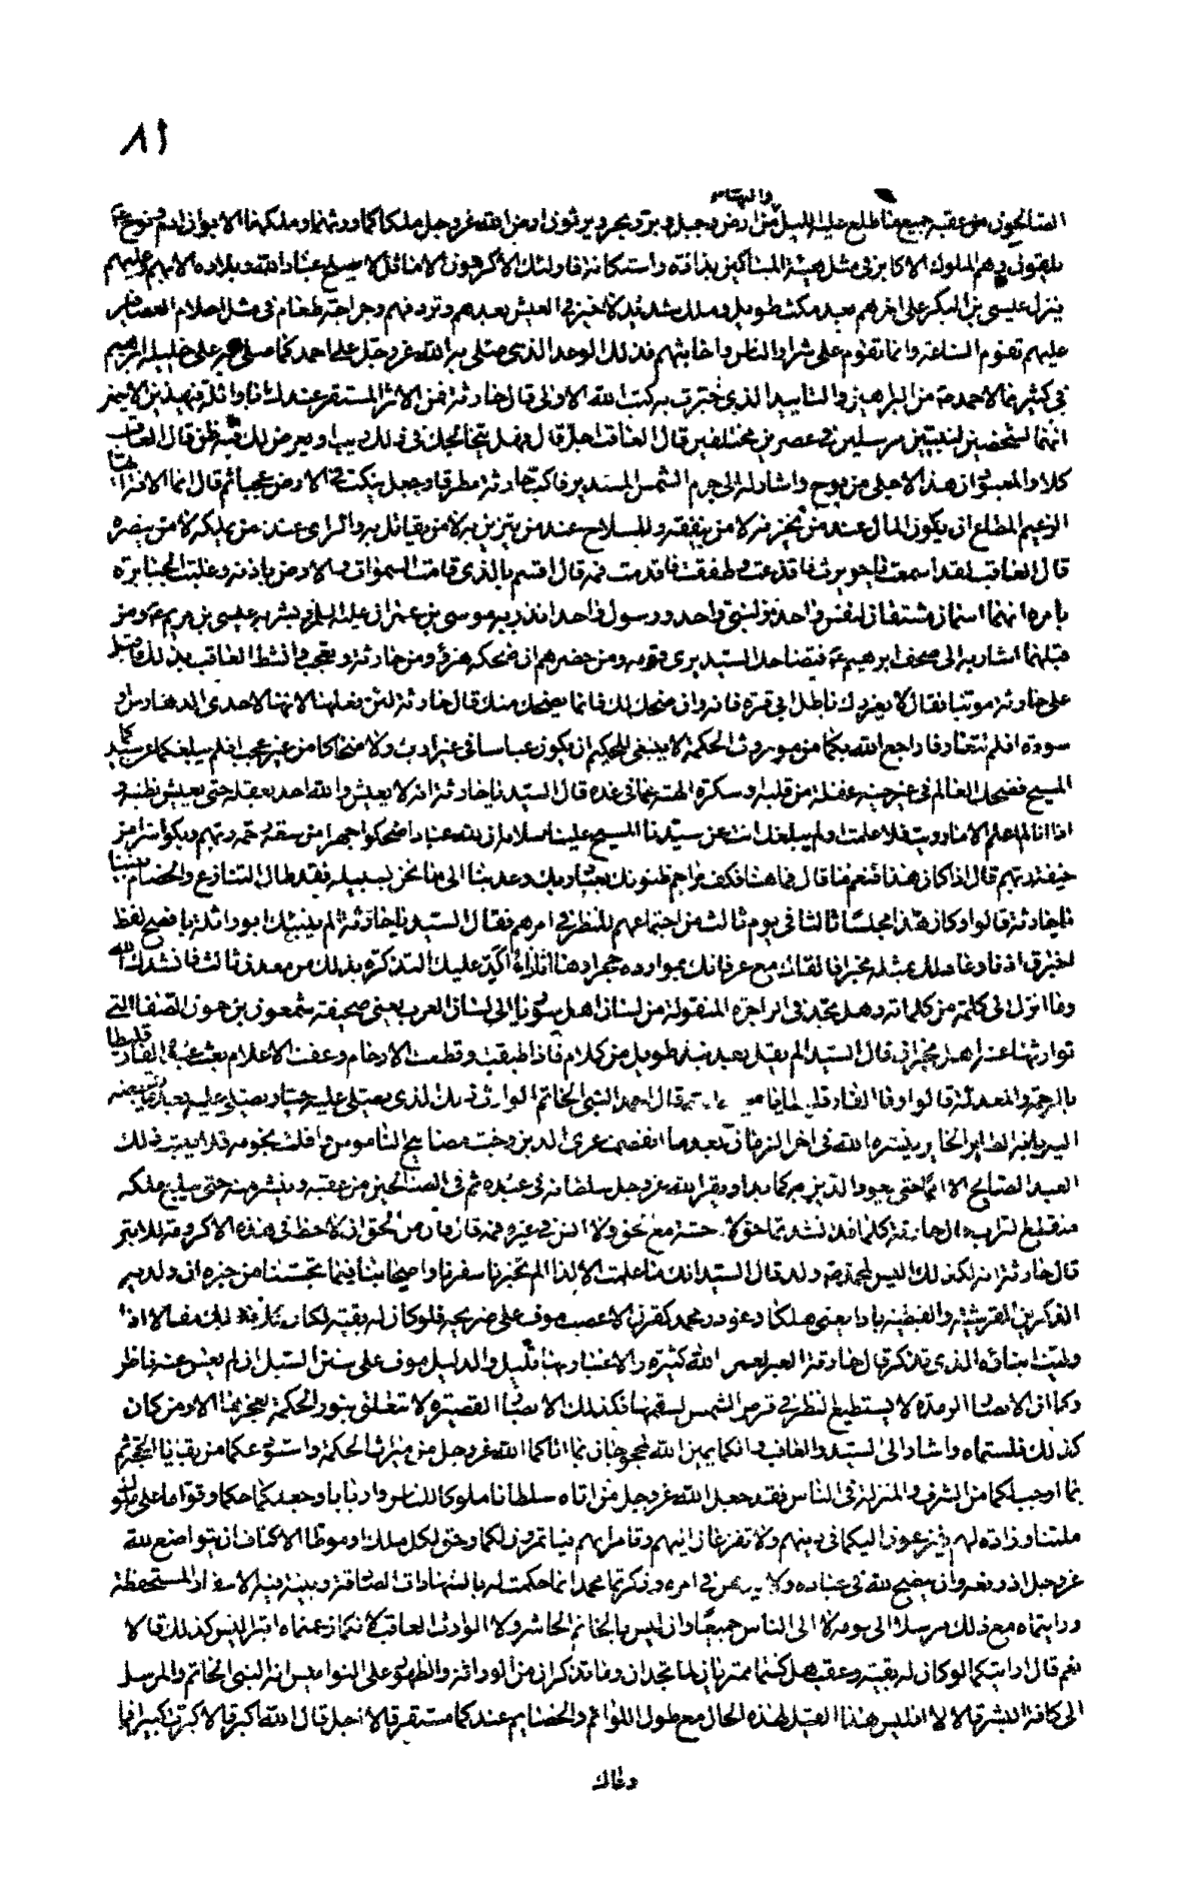 ٨١
والنهار
الصالحون من عقبه جميع ما طلع عليه الليل من ارض وجبل وبر وبحر ويرثون ارض الله عز وجل ملكا كما ورثهما وملكهما الابوان ادم ونوح
يلقون وهم الملوك الاكابر في مثل هيئة المساكين بذاذة واستكانة فاولئك الاكرمون الاماثل لا يصلح عباد الله وبلاده الا بهم وعليهم
ينزل عيسى بن البكر على اخرهم بعد مكث طويل وملك شديد لا خير في العيش بعدهم وتردفهم رجراجة طغام في مثل احلام العصافير
عليهم تقوم الساعة وانما تقوم على شرار الناس واخابثهم فذلك الوعد الذي صلى به الله عز وجل على احمد كما صلى به على خليله ابراهيم
في كثير مما لاحمد من البراهين والتاييد الذي خبرت به كتب الله الاولى قال حارثة فمن الاثر المستقر عندك ابا واثلة في هذين الاسمين
انهما لشخصين لنبيين مرسلين في عصرين مختلفين قال العاقب اجل قال فهل يتخالجك في ذلك ريب او يعرض لك فيه ظن قال العاقب
كلا والمعبود ان هذا لاجلى من بوح واشار له الى جرم الشمس المستدير فاكب حارثة مطرقا وجعل ينكت في الارض عجبا ثم قال انما الافة ايها
الزعيم المطاع ان يكون المال عند من يخزنه لا من ينفقه والسلاح عند من يتزين به لا من يقاتل به والراي عند من يملكه لا من ينصره
قال العاقب لقد اسمعت يا حويرث فاقذعت وطفقت فاقدمت فمه قال اقسم بالذي قامت السموات والارض باذنه وغلبت الجبابرة
بامره انهما اسمان مشتقان لنفس واحدة ولنبي واحد ورسول واحد انذر به موسى بن عمران عليه السلم وبشر به عيسى بن مريم ومن
قبلهما اشار به الى صحف ابرهيم فتضاحك السيد يرى قومه ومن حضرهم ان ضحكه هزء ومن حارثة وتعجبا وانشط العاقب بذلك فاقبل
على حارثة مونبا فقال لا يغررك باطل ابي قرة فانه وان ضحك لك فانما يضحك منك قال حارثة لئن فعلها لانها لاحدى الدهارس او
سوءة افلم تتعارفا راجع الله بكما من موروث الحكمة لا ينبغي للحكيم ان يكون عباسا في غير ادب ولا ضحاكا من غير عجب افلم يبلغكما عن سيدكما
المسيح فضحك العالم في غير حينه غفلة من قلبه او سكرة الهته عما في غده قال السيد يا حارثة انه لا يعيش والله احد بعقله حتى يعيش بظنه و
اذا انا لم اعلم الا ما رويت فلا علمت اولم يبلغك انت عن سيدنا المسيح علينا سلامه ان لله عبادا ضحكوا جهرا من سعة رحمة ربهم وبكوا سرا من
خيفة ربهم قال اذا كان هذا فنعم فما قال فما هنا فلتكف مراجم ظنونك بعباد ربك وعد بنا الى ما نحن بسبيله فقد طال التنازع والخصام بيننا
يا حارثة قالوا وكان هذا مجلسا ثالثا في يوم ثالث من اجتماعهم للنظر في امرهم فقال السيد يا حارثة الم ينبئك ابو واثلة بافصح لفظ
اخترق اذنا ودعا ذلك بمثله مخبرا فالقاك مع عزفانك بموارده حجرا وها انا ذا اوكد عليك التذكرة بذلك من معدن ثالث فانشدك الله
وما انزل الى كلمة من كلماته هل تجد في الزاجرة المنقولة من لسان اهل سوريا الى لسان العرب يعني صحيفة شمعون بن حمون الصفا التي
توارثها عنه اهل نجران قال السيد الم يقل بعد نبذ طويل من كلام فاذا طبقت وقطعت الارحام وعفت الاعلام بعث الله عبده الفارقليطا
بالرحمة والمعدلة قالوا وما الفارقليطا قال احمد النبي الخاتم الوارث ذلك الذي يصلى عليه حيا ويصلى عليه بعد ما يقبضه
اليه بابنه الطاهر الخاير ينشره الله في اخر الزمان بعدما انفضت عرى الدين وخبت مصابيح الناموس وافلت نجومه فلا يلبث ذلك
العبد الصالح الا امما حتى يعود الدين به كما بدا ويقر الله عز وجل سلطانه في عبده ثم في الصالحين من عقبه وينشر منه حتى يبلغ ملكه
منقطع التراب قال حارثة كلما قد انشدتما حق لا وحشة مع الحق ولا انس في غيره فمه
قال حارثة انه لكذلك اليس لمحمد ولد قال السيد انك ما علمت الا لدا الم يخبرنا سفرنا واصحابنا فيما تجسسنا من خبره ان ولديه
الذكرين القرشية والقبطية بادا يعني هلكا وغودر محمد كقرن الاعضب موف على ضريحه فلو كان له بقية لكان لك بذلك مقالا اذا
وليت ابناؤه الذي تذكر قال حارثة العبر لعمر الله كثيرة والاعتبار بها قليل والدليل موف على سنن السبيل ان لم يعش عنه ناظر
وكما ان الابصار الرمدة لا يستطيع النظر في قرص الشمس لسقمها فكذلك الابصار القصيرة لا تتعلق بنور الحكمة لعجزها الا ومن كان
كذلك فلستماه واشار الى السيد والعاقب انكما يمين الله لمحجوجان بما اتاكما الله عز وجل من ميراث الحكمة واستودعكما من بقايا الحجة ثم
بما اوجب لكما من الشرف والمنزلة في الناس فقد جعل الله عز وجل من اتاه سلطانا ملوكا للناس واربابا وجعلكما حكما وقواما على ملوك
ملتنا وذادة لهم يفزعون اليكما في دينهم ولا تفزعان اليهم وتامرانهم فياتمرون لكما وحق لكل ملك او موطا الاكناف ان يتواضع لله
عز وجل اذ رفعه وان ينصح لله في عباده ولا يدهن في امره وذكرتما محمدا بما حكمت له به الشهادات الصادقة وبينة فيه الاسفار المستحفظة
ورايتماه مع ذلك مرسلا الى قومه لا الى الناس جميعا وان ليس بالخاتم الحاشر ولا الوارث العاقب لانكما زعمتماه ابتر اليس كذلك قالا
نعم قال ارايتكما لو كان له بقية وعقب هل كنتما ممتريين لما تجدان وما تذكران من الوراثة والظهور على النواميس انه النبي الخاتم والمرسل
الى كافة البشر قالا لا قال افليس هذا القيل لهذه الحال مع طول اللوائم والخصايم عندكما مستقر قالا اجل قال الله اكبر قالا كبرت كبيرا فما
دعاك